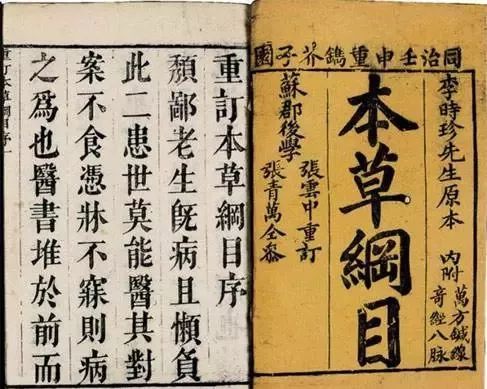 同治壬申重鐫芥子園
李時珍先生原本
內附
萬方鍼線
奇經八脈
本草綱目
蘇郡後學
張雲中重訂
張青萬仝參
重訂本草綱目序
頽鄙老生旣病且懶負
此二患世莫能醫其對
案不食憑牀不寐則病
之爲也醫書堆於前而
重訂本草綱目序一